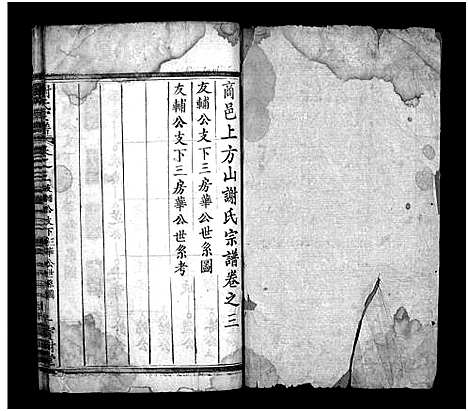 商邑上方山謝氏宗譜卷之三
友輔公支下三房華公世系圖
友輔公支下三房華公世系考
友輔公支下三華公世系圖